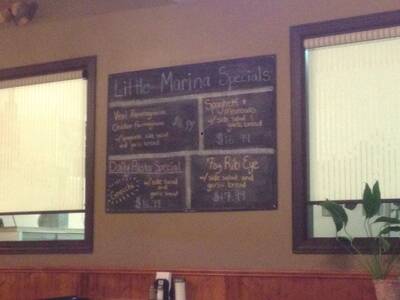 Little Marina Specials
Veal Parmigiana
Chicken Parmigiana
w/ spaghetti, side salad
and garlic bread
Spaghetti &
Meatballs
w/ side salad &
garlic bread
$16.99
Daily Pasta Special
w/ side salad
and
garlic bread
$16.99
7oz Rib Eye
w/ side salad and
garlic bread
$17.99